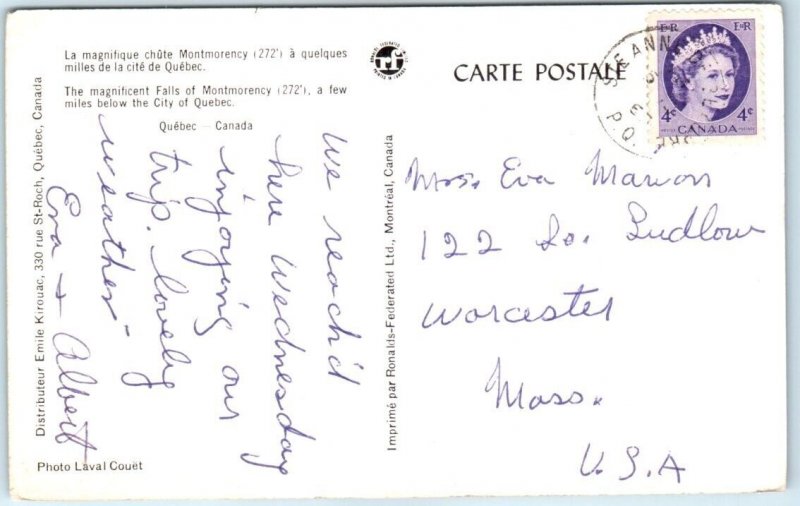 La magnifique chûte Montmorency (272') à quelques
milles de la cité de Québec.
The magnificent Falls of Montmorency (272'), a few
miles below the City of Quebec.
Québec — Canada
CARTE POSTALE
E R
E R
4¢
4¢
CANADA
STE ANN
P.Q.
Distributeur Emile Kirouac, 330 rue St-Roch, Québec, Canada
Imprimé par Ronalds-Federated Ltd., Montréal, Canada
We reach'd
here Wednesday
injoying our
trip. lovely
weather -
Eva + Albert
Mrs. Eva Marion
122 So. Ludlow
Worcester
Mass.
U.S.A
Photo Laval Couët